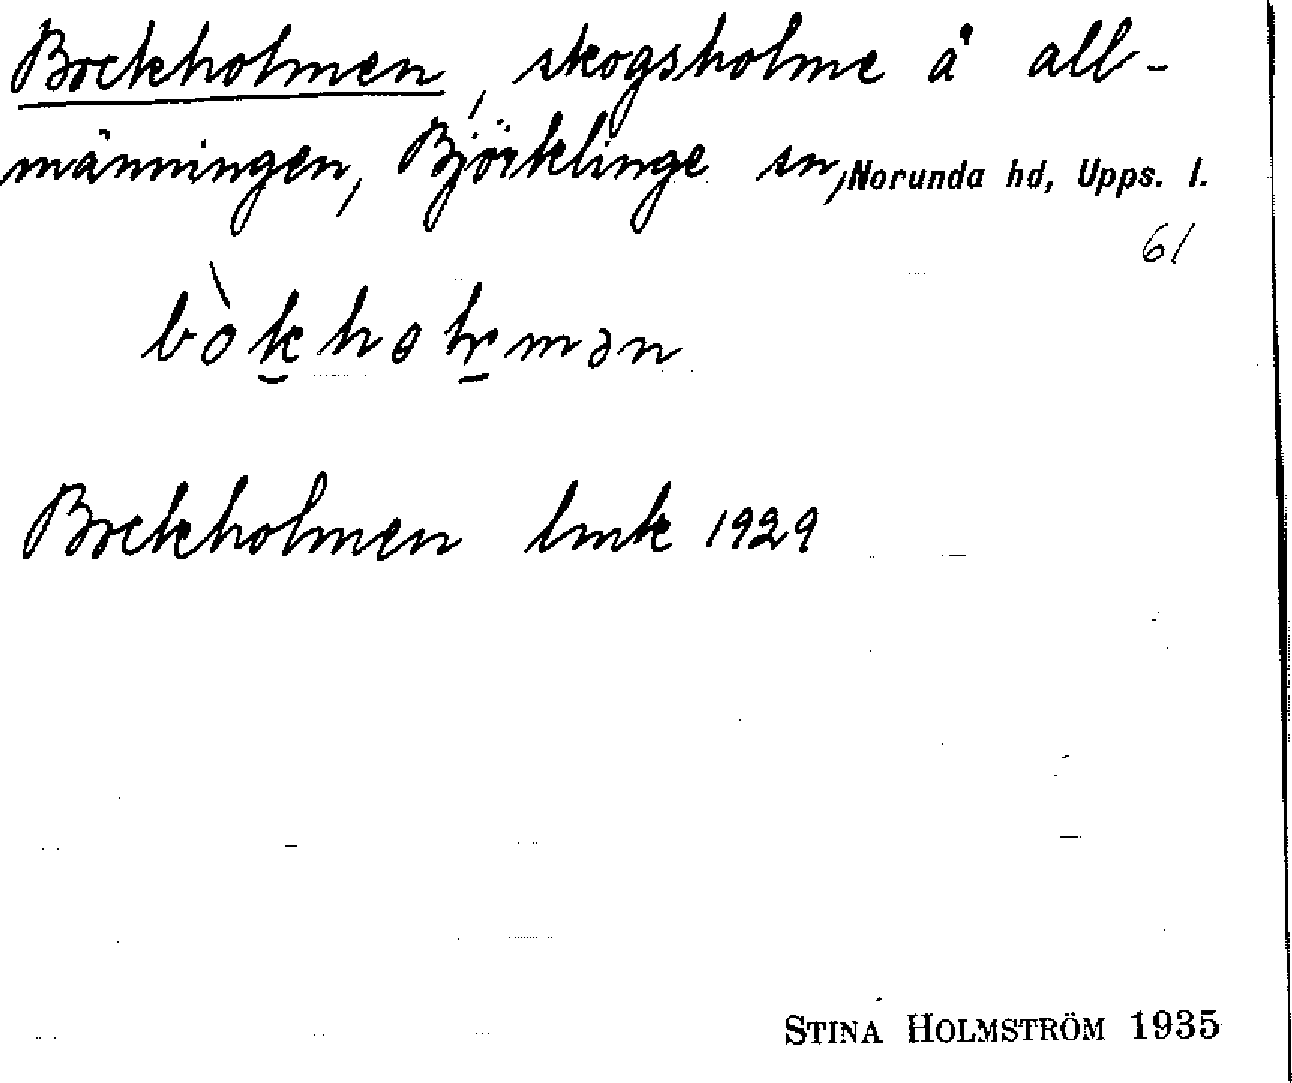 Bockholmen, skogsholme å all-
männingen, Björklinge sn, Norunda hd, Upps. l.
61
Bockholmen lmk 1929
STINA HOLMSTRÖM 1935